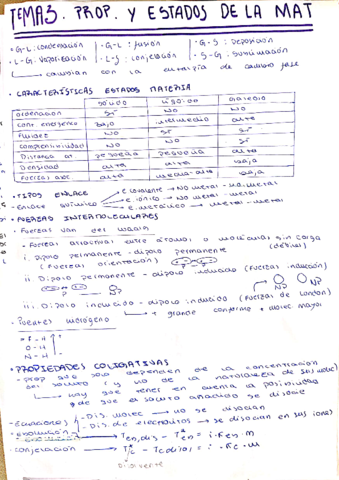 TEMA 3. PROP. Y ESTADOS DE LA MAT
· G-L: condensación | · G-L: fusión | · G-S: Deposición
· L-G: vaporización | · L-S: congelación | · S-G: sublimación
→ cambian con la entalpía de cambio fase
· CARACTERÍSTICAS ESTADOS MATERIA
sólido líquido gaseoso
ordenación sí no no
cont. energético bajo intermedio alto
fluidez no sí sí
compresibilidad no no
Distancia at pequeña pequeña alta
Densidad alta alta baja
Fuerzas atrac alta media-alta baja
· TIPOS ENLACE
· Enlace químico
e. covalente → No metal - no metal
e. iónico → No metal - metal
e. metálico → metal - metal
· FUERZAS INTERMOLECULARES
· Fuerzas van der
· Fuerzas atracción entre átomos o moléculas sin carga
(débiles)
i. Dipolo permanente - dipolo permanente
(Fuerzas orientación)
ii. Dipolo permanente - dipolo inducido (Fuerzas inducción)
P NP NP
iii. Dipolo inducido - dipolo inducido (Fuerzas de London)
+ grande conforme + atrac mayor
· Puentes hidrógeno
F-H
O-H
N-H
· PROPIEDADES COLIGATIVAS
· Prop que solo dependen de la concentración
del soluto (y no de la naturaleza de
→ hay que tener en cuenta la posibilidad
de que el soluto añadido se disocie
· Ecuaciones
Dis. molec → no se disocian
Dis. de electrolitos → se disocian en sus iones
· ebullición → Teb,dis - T*eb = i·Keb·m
· congelación → T*c - Tc,dis = i·Kc·m
Disolvente